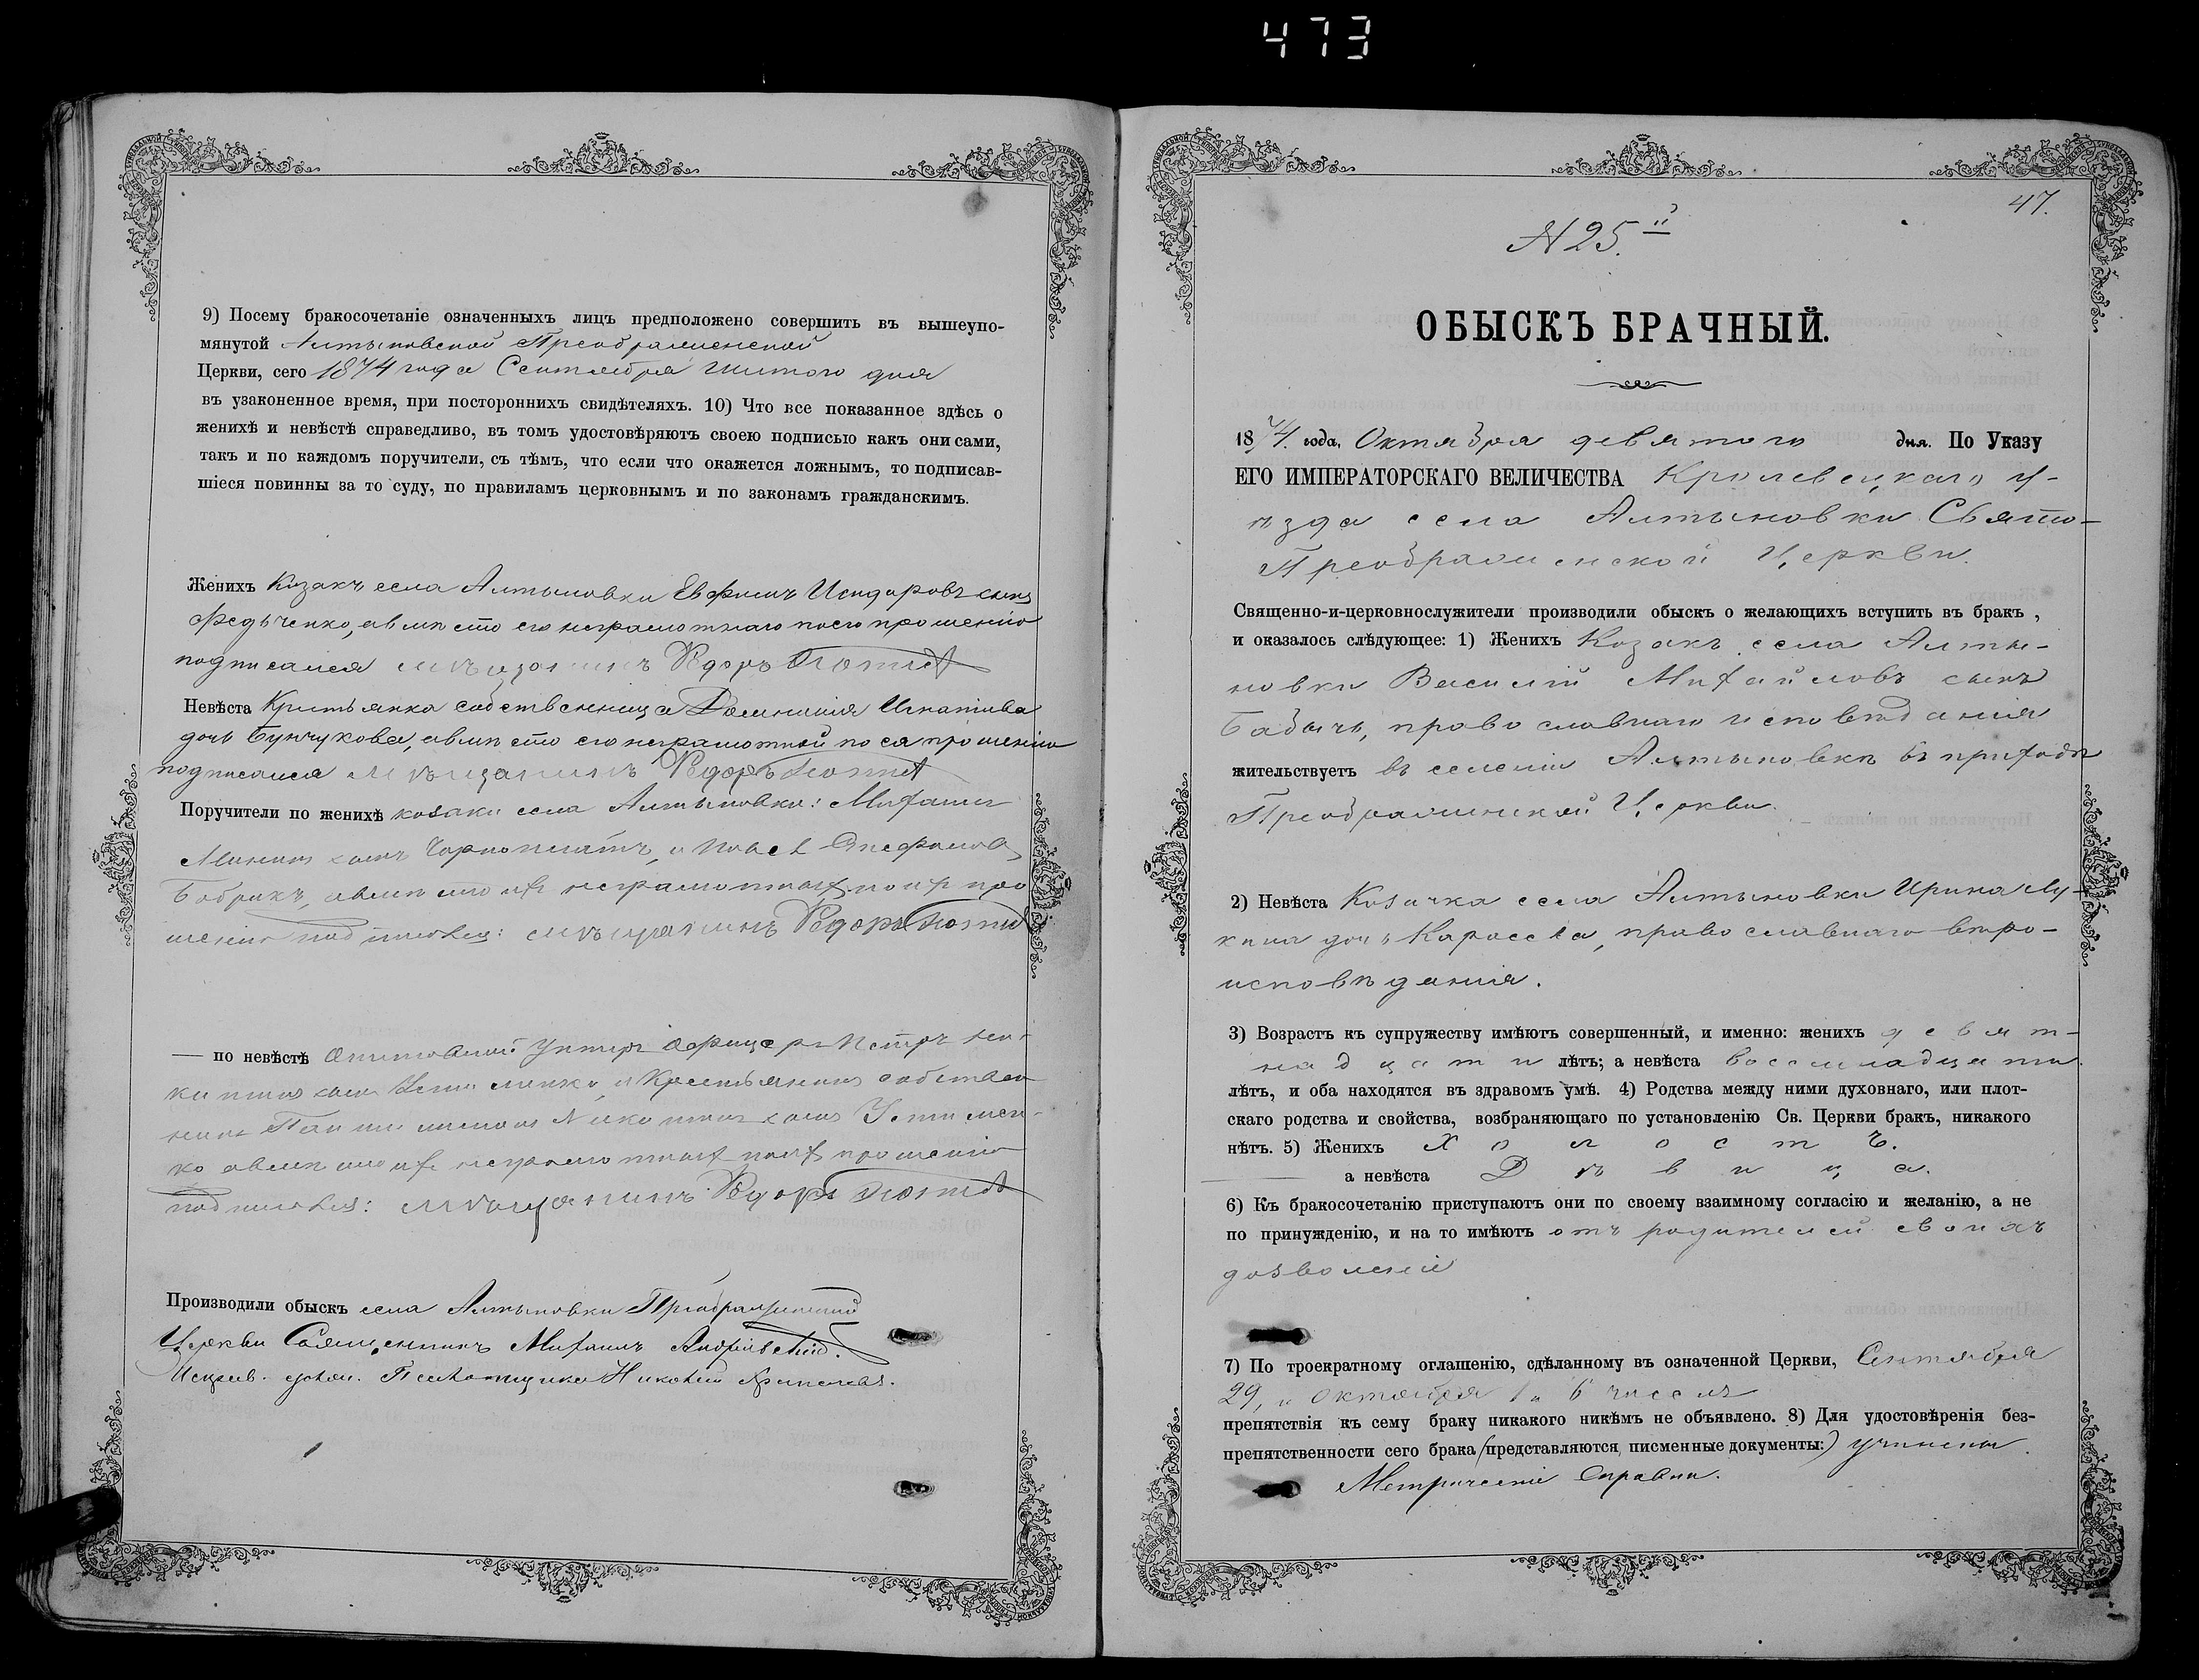 473
9) Посему бракосочетаніе означенныхъ лицъ предположено совершить въ вышеупо-
мянутой Алтыновской Преображенской
Церкви, сего 1874 года Сентября шитого дня
въ узаконенное время, при постороннихъ свидѣтеляхъ. 10) Что все показанное здѣсь о
женихѣ и невѣстѣ справедливо, въ томъ удостовѣряютъ своею подписью какъ они сами,
такъ и по каждомъ поручители, съ тѣмъ, что если что окажется ложнымъ, то подписав-
шіеся повинны за то суду, по правиламъ церковнымъ и по законамъ гражданскимъ.
Женихъ Козакъ села Алтыновки Евфимъ Исидоровъ сынъ
Федьченко, авмѣсто его неграмотнаго по его прошенію
подписался мѣщанинъ Ѳедоръ
Невѣста Крестьянка собственница Домникія Игнатіева
дочь Бунчукова, авмѣсто его неграмотной по ея прошенію
подписался мѣщанинъ Ѳедоръ
Поручители по женихѣ козаки села Алтыновки: Михаилъ
сынъ и
Бобрикъ, авмѣсто ихъ неграмотныхъ по ихъ про
шенію подписался: мѣщанинъ Ѳедоръ
— по невѣстѣ Унтеръ Офицеръ Петръ Ни-
китинъ сынъ Устименко, и Крестьянинъ собствен
никъ Никитинъ сынъ Устимен-
ко авмѣсто ихъ неграмотныхъ по ихъ прошенію
подписался: мѣщанинъ Ѳедоръ
Производили обыскъ села Алтыновки Преображенской
Церкви Священникъ Михаилъ Андріевскій.
Псаломщика Николай
47.
N 25.й
ОБЫСКЪ БРАЧНЫЙ.
1874. года, Октября девятого дня. По Указу
ЕГО ИМПЕРАТОРСКАГО ВЕЛИЧЕСТВА Кролевецкаго у-
ѣзда села Алтыновки Свято-
Преображенской Церкви.
Священно-и-церковнослужители производили обыскъ о желающихъ вступить въ бракъ,
и оказалось слѣдующее: 1) Женихъ Козакъ села Алты-
новки Василій Михайловъ сынъ
Бабычъ, православнаго исповѣданія
жительствуетъ въ селеніи Алтыновкѣ въ приходѣ
Преображенской Церкви.
2) Невѣста Козачка села Алтыновки Ирина Лу-
кина дочь Карась, православнаго вѣро-
исповѣданія.
3) Возрастъ къ супружеству имѣютъ совершенный, и именно: женихъ девят-
надцати лѣтъ; а невѣста восемнадцати
лѣтъ, и оба находятся въ здравомъ умѣ. 4) Родства между ними духовнаго, или плот-
скаго родства и свойства, возбраняющаго по установленію Св. Церкви бракъ, никакого
нѣтъ. 5) Женихъ Холостъ.
а невѣста Дѣвица.
6) Къ бракосочетанію приступаютъ они по своему взаимному согласію и желанію, а не
по принужденію, и на то имѣютъ отъ родителей своихъ
дозволеніе
7) По троекратному оглашенію, сдѣланному въ означенной Церкви, Сентября
29, и Октября 1 и 6 чиселъ
препятствія къ сему браку никакого никѣмъ не объявлено. 8) Для удостовѣренія без-
препятственности сего брака (представляются писменные документы:) учинены
Метрическіе Справки.